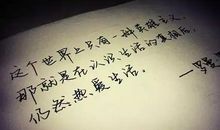 这个世界上只有一种英雄主义，
那就是在认识生活的真相后，
仍然热爱生活。
—罗曼